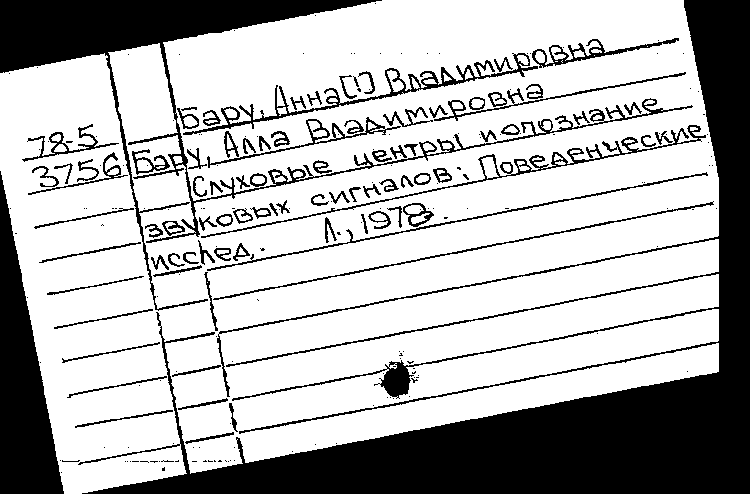 Бару, Анна [!] Владимировна
78-5
3756 Бару, Алла Владимировна
Слуховые центры и опознание
звуковых сигналов: Поведенческие
исслед. Л., 1978.